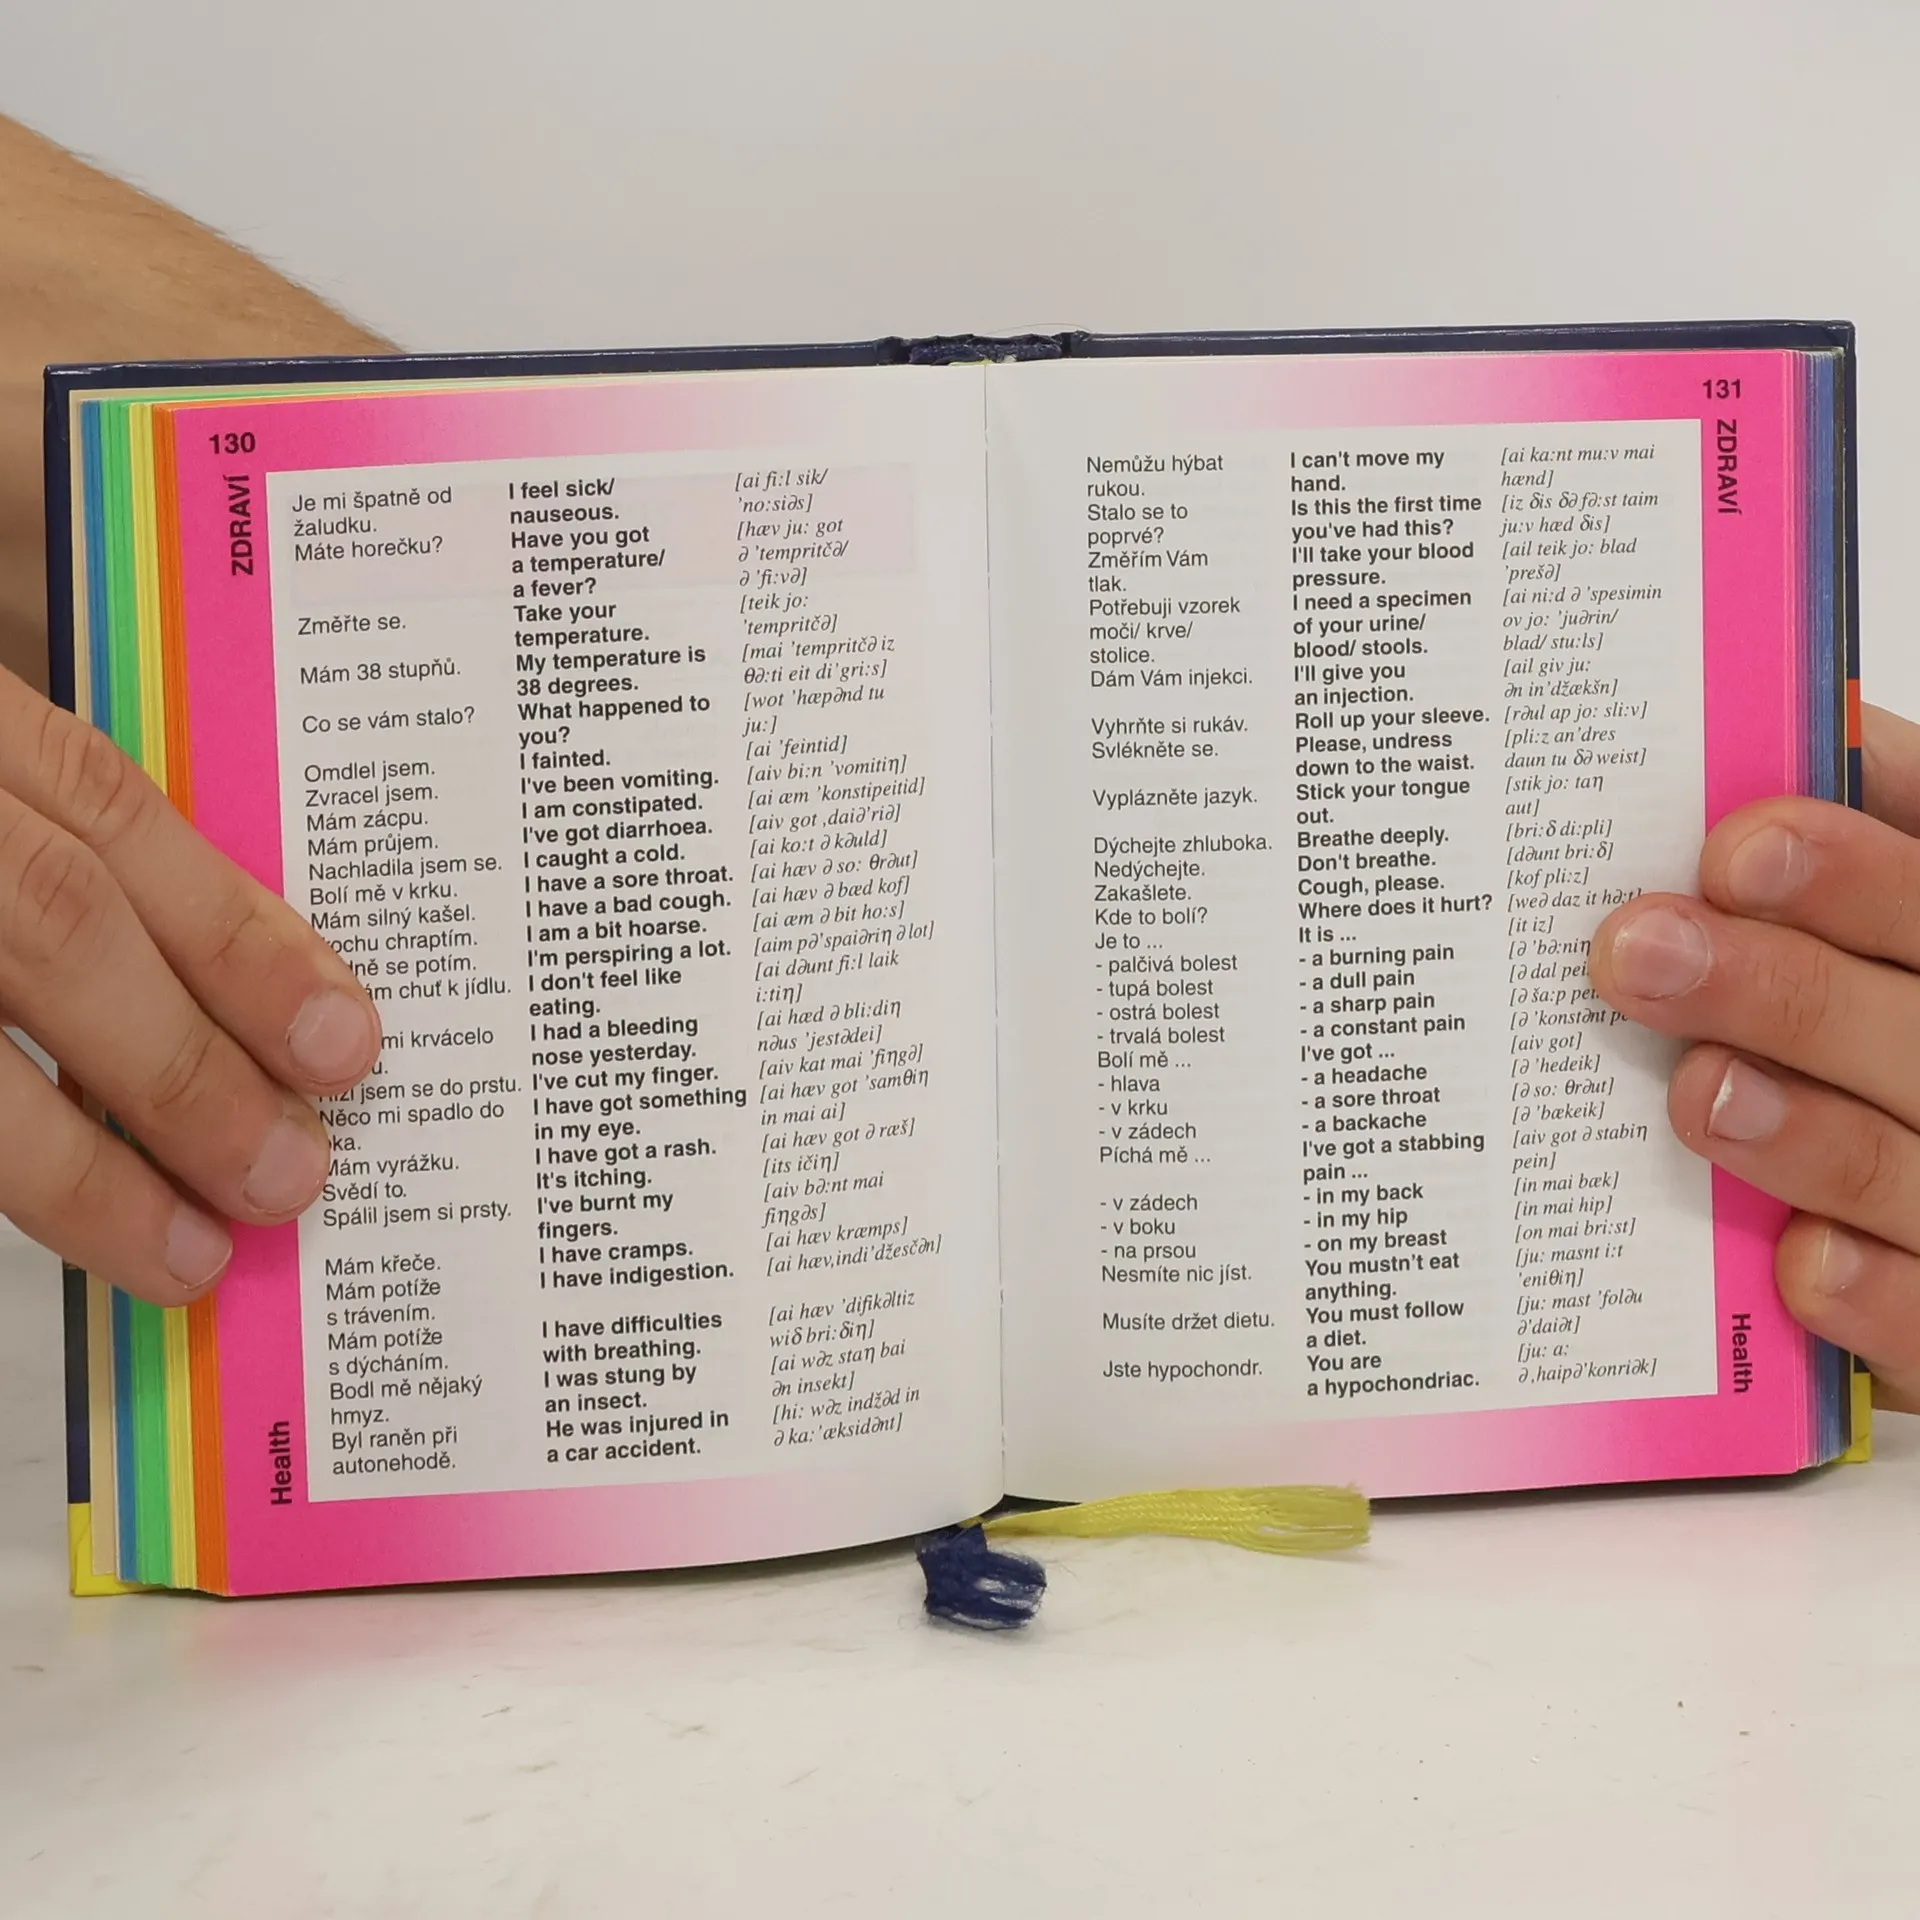 130
ZDRAVÍ
Je mi špatně od
žaludku.
Máte horečku?
Změřte se.
Mám 38 stupňů.
Co se vám stalo?
Omdlel jsem.
Zvracel jsem.
Mám zácpu.
Mám průjem.
Nachladila jsem se.
Bolí mě v krku.
Mám silný kašel.
chraptím.
se potím.
chuť k jídlu.
mi krvácelo
jsem se do prstu.
Něco mi spadlo do
Mám vyrážku.
Svědí to.
Spálil jsem si prsty.
Mám křeče.
Mám potíže
s trávením.
Mám potíže
s dýcháním.
Bodl mě nějaký
hmyz.
Byl raněn při
autonehodě.
I feel sick/
nauseous.
Have you got
a temperature/
a fever?
Take your
temperature.
My temperature is
38 degrees.
What happened to
you?
I fainted.
I've been vomiting.
I am constipated.
I've got diarrhoea.
I caught a cold.
I have a sore throat.
I have a bad cough.
I am a bit hoarse.
I'm perspiring a lot.
I don't feel like
eating.
I had a bleeding
nose yesterday.
I've cut my finger.
I have got something
in my eye.
I have got a rash.
It's itching.
I've burnt my
fingers.
I have cramps.
I have indigestion.
I have difficulties
with breathing.
I was stung by
an insect.
He was injured in
a car accident.
[ai fi:l sik/
'no:si∂s]
[hæv ju: got
∂ 'tempritč∂/
∂ 'fi:v∂]
[teik jo:
'tempritč∂]
[mai 'tempritč∂ iz
θ∂:ti eit di'gri:s]
[wot 'hæp∂nd tu
ju:]
[ai 'feintid]
[aiv bi:n 'vomitiη]
[ai æm 'konstipeitid]
[aiv got ,dai∂'ri∂]
[ai ko:t ∂ k∂uld]
[ai hæv ∂ so: θr∂ut]
[ai hæv ∂ bæd kof]
[ai æm ∂ bit ho:s]
[aim p∂'spai∂riη ∂ lot]
[ai d∂unt fi:l laik
i:tiη]
[ai hæd ∂ bli:diη
n∂us 'jest∂dei]
[aiv kat mai 'fiηg∂]
[ai hæv got 'samθiη
in mai ai]
[ai hæv got ∂ ræš]
[its ičiη]
[aiv b∂:nt mai
fiηg∂s]
[ai hæv kræmps]
[ai hæv,indi'džesč∂n]
[ai hæv 'difik∂ltiz
wiδ bri:δiη]
[ai w∂z staη bai
∂n insekt]
[hi: w∂z indž∂d in
∂ ka: 'æksid∂nt]
Health
131
ZDRAVÍ
Nemůžu hýbat
rukou.
Stalo se to
poprvé?
Změřím Vám
tlak.
Potřebuji vzorek
moči/ krve/
stolice.
Dám Vám injekci.
Vyhrňte si rukáv.
Svlékněte se.
Vyplázněte jazyk.
Dýchejte zhluboka.
Nedýchejte.
Zakašlete.
Kde to bolí?
Je to ...
- palčivá bolest
- tupá bolest
- ostrá bolest
- trvalá bolest
Bolí mě ...
- hlava
- v krku
- v zádech
Píchá mě ...
- v zádech
- v boku
- na prsou
Nesmíte nic jíst.
Musíte držet dietu.
Jste hypochondr.
I can't move my
hand.
Is this the first time
you've had this?
I'll take your blood
pressure.
I need a specimen
of your urine/
blood/ stools.
I'll give you
an injection.
Roll up your sleeve.
Please, undress
down to the waist.
Stick your tongue
out.
Breathe deeply.
Don't breathe.
Cough, please.
Where does it hurt?
It is ...
- a burning pain
- a dull pain
- a sharp pain
- a constant pain
I've got ...
- a headache
- a sore throat
- a backache
I've got a stabbing
pain ...
- in my back
- in my hip
- on my breast
You mustn't eat
anything.
You must follow
a diet.
You are
a hypochondriac.
[ai ka:nt mu:v mai
hænd]
[iz δis δ∂ f∂:st taim
ju:v hæd δis]
[ail teik jo: blad
'preš∂]
[ai ni:d ∂ 'spesimin
ov jo: 'ju∂rin/
blad/ stu:ls]
[ail giv ju:
∂n in'džækšn]
[r∂ul ap jo: sli:v]
[pli:z an'dres
daun tu δ∂ weist]
[stik jo: taη
aut]
[bri:δ di:pli]
[d∂unt bri:δ]
[kof pli:z]
[we∂ daz it h∂:t]
[it iz]
[∂ 'b∂:niη
[∂ dal
[∂ ša:p
[∂ 'konst∂nt
[aiv got]
[∂ 'hedeik]
[∂ so: θr∂ut]
[∂ 'bækeik]
[aiv got ∂ stabiη
pein]
[in mai bæk]
[in mai hip]
[on mai bri:st]
[ju: masnt i:t
'eniθiη]
[ju: mast 'fol∂u
∂'dai∂t]
[ju: a:
∂ ,haip∂'konri∂k]
Health